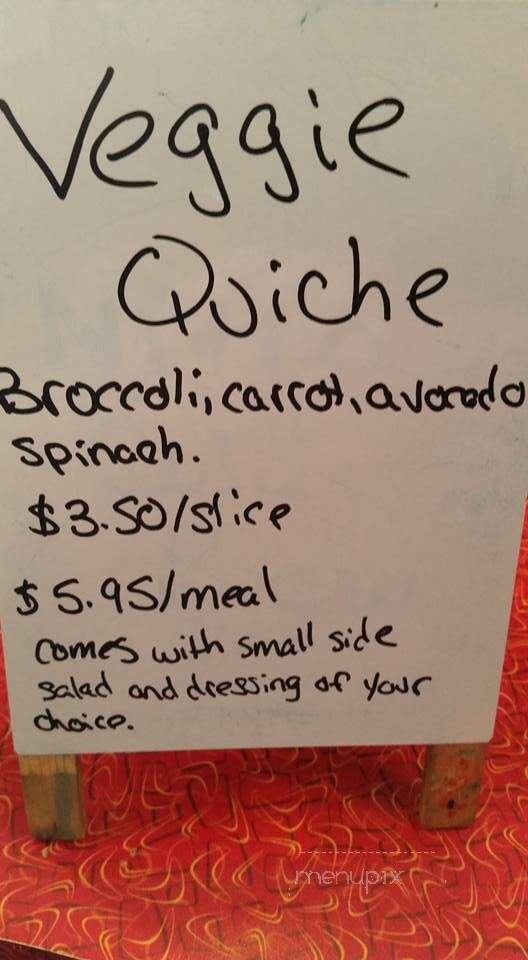 Veggie
Quiche
Broccoli, carrot, avocado
spinach.
$3.50/slice
$5.95/meal
comes with small side
salad and dressing of your
choice.
menupix